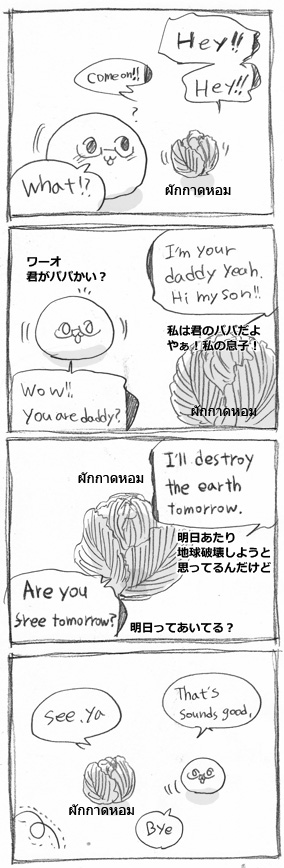 Hey!!
Hey!!
Come on!!
?
What!?
ผักกาดหอม
I'm your
daddy Yeah.
Hi my son!!
ワーオ
君がパパかい？
私は君のパパだよ
やぁ！私の息子！
Wow!!
You are daddy?
ผักกาดหอม
ผักกาดหอม
I'll destroy
the earth
tomorrow.
明日あたり
地球破壊しようと
思ってるんだけど
Are you
free tomorrow?
明日ってあいてる？
See.Ya
That's
sounds good.
ผักกาดหอม
Bye